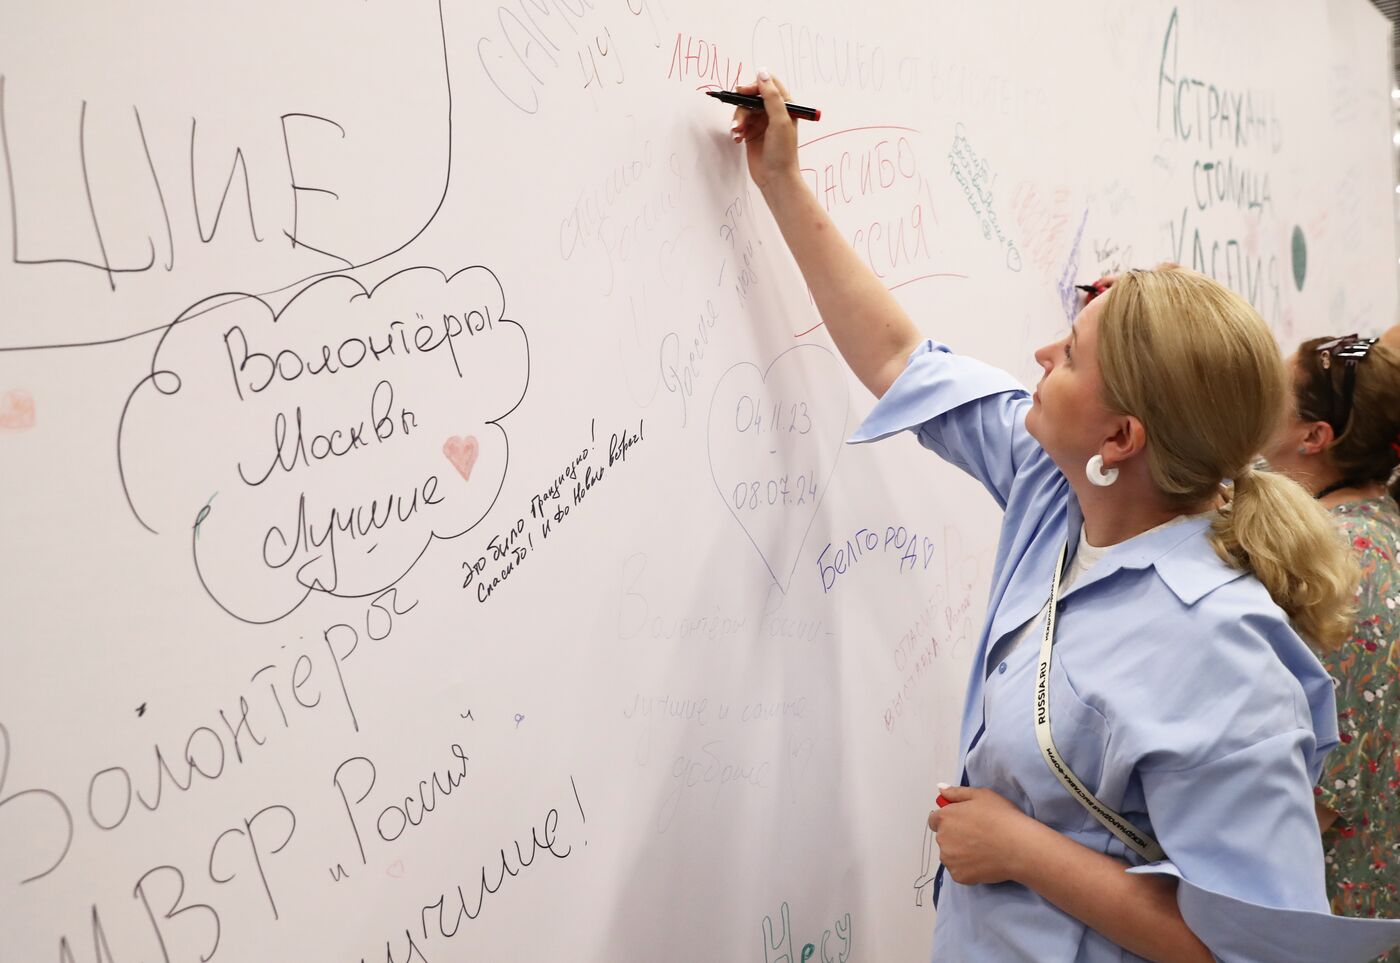 САМИ
ЧУ
ЛЮДИ
СПАСИБО ОТ ВОЛОНТЕРО
АСТРАХАНЬ
СТОЛИЦА
КАСПИЯ
ШИЕ
СПАСИБО,
РОССИЯ!
спасибо
Россия
Россия - это
люди
Волонтёры
Москвы
Лучшие
Это было грандиозно!
Спасибо! И до новых встреч!
04.11.23
-
08.07.24
БЕЛГОРОД
Волонтёры России -
лучшие и самые
добрые
СПАСИБО
ВЫСТАВКА "Россия"
Волонтёрос
МВФ "Россия"
лучшие!
Несу
RUSSIA.RU
МЕЖДУНАРОДНАЯ ВЫСТАВКА-ФОРУМ